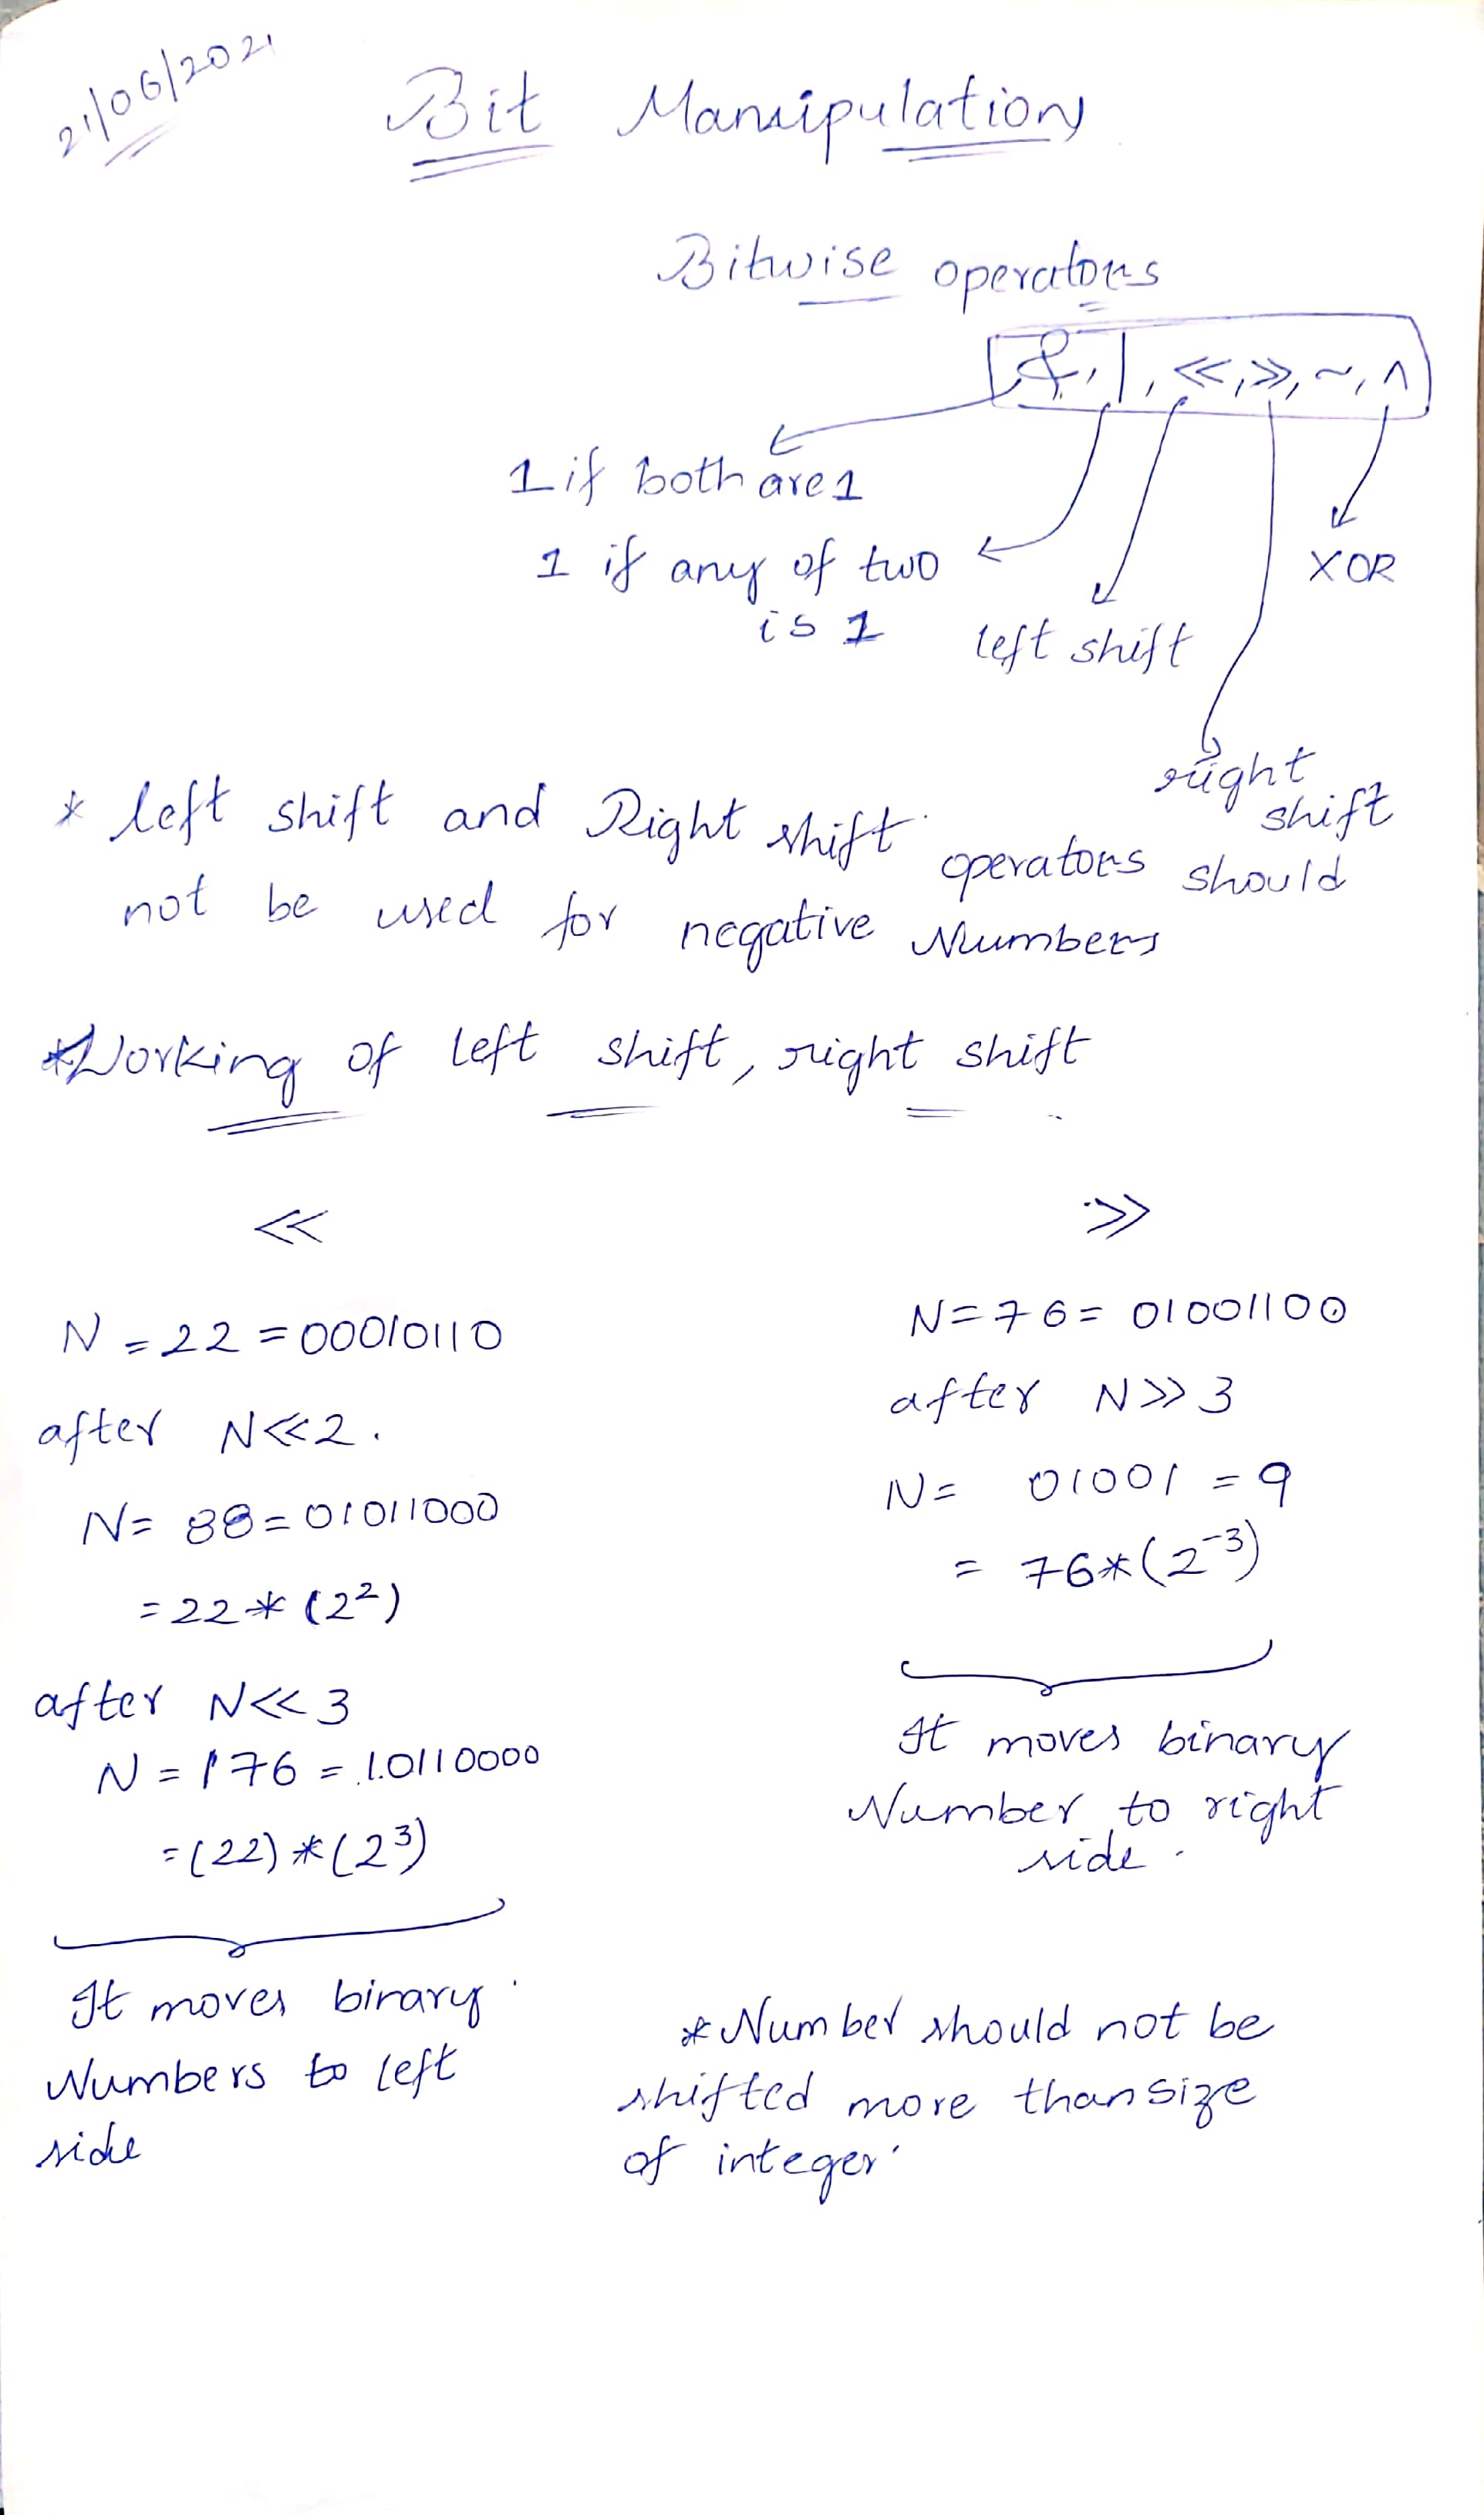 21/06/2021
Bit Manipulation
Bitwise operators
&, |, <<, >>, ~, ^
1 if both are 1
1 if any of two
is 1
XOR
left shift
right
shift
* left shift and Right shift operators should
not be used for negative Numbers
*Working of left shift, right shift
<<
N = 22 = 00010110
after N<<2.
N= 88 = 01011000
= 22 * (2²)
after N<<3
N = 176 = 10110000
= (22) * (2³)
It moves binary
Numbers to left
side
>>
N = 76 = 01001100
after N>>3
N = 01001 = 9
= 76*(2⁻³)
It moves binary
Number to right
side.
* Number should not be
shifted more than size
of integer